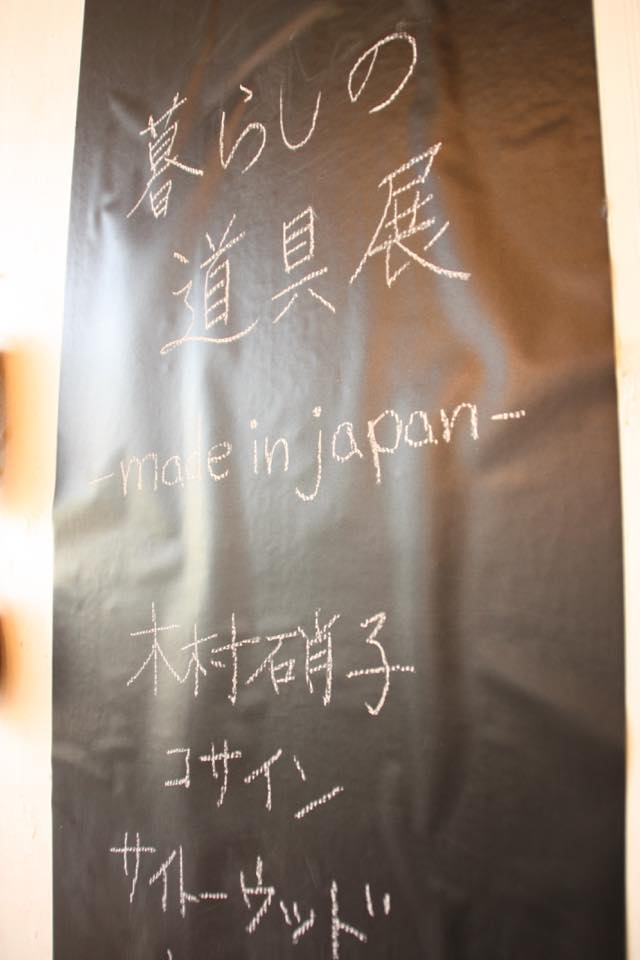 暮らしの
道具展
-made in japan-
木村硝子
コサイン
サイトーウッド